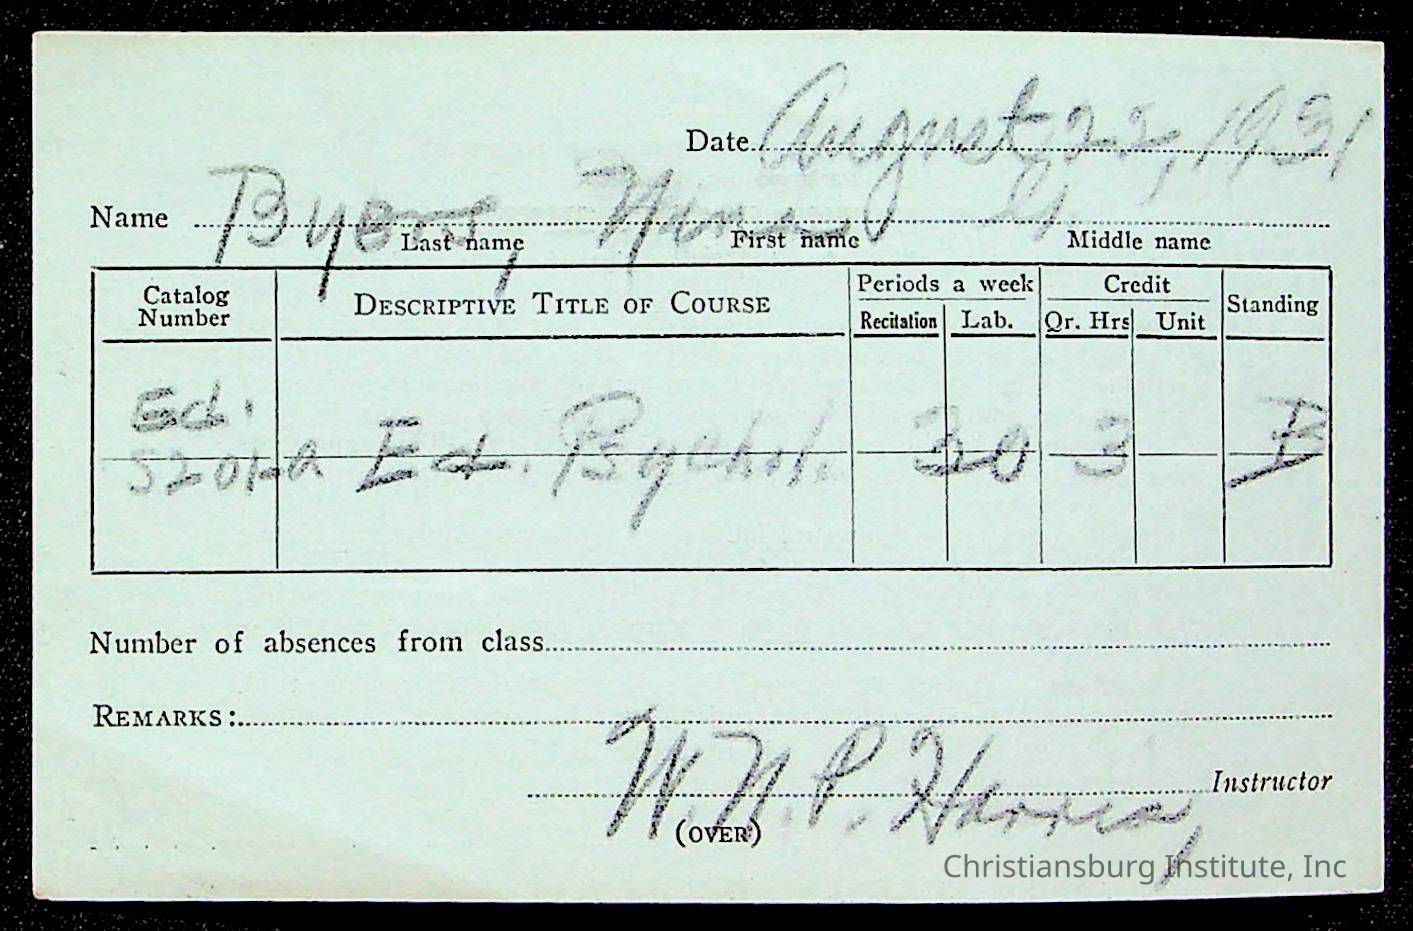 Date August 22, 1931
Name Byers, G.
Last name First name Middle name
Catalog Number DESCRIPTIVE TITLE OF COURSE Periods a week Credit Standing
Recitation Lab. Qr. Hrs Unit
Ed. 5201-a Ed. Psychol. 30 3 B
Number of absences from class
REMARKS:
W. N. P. Harris, Instructor
(OVER)
Christiansburg Institute, Inc